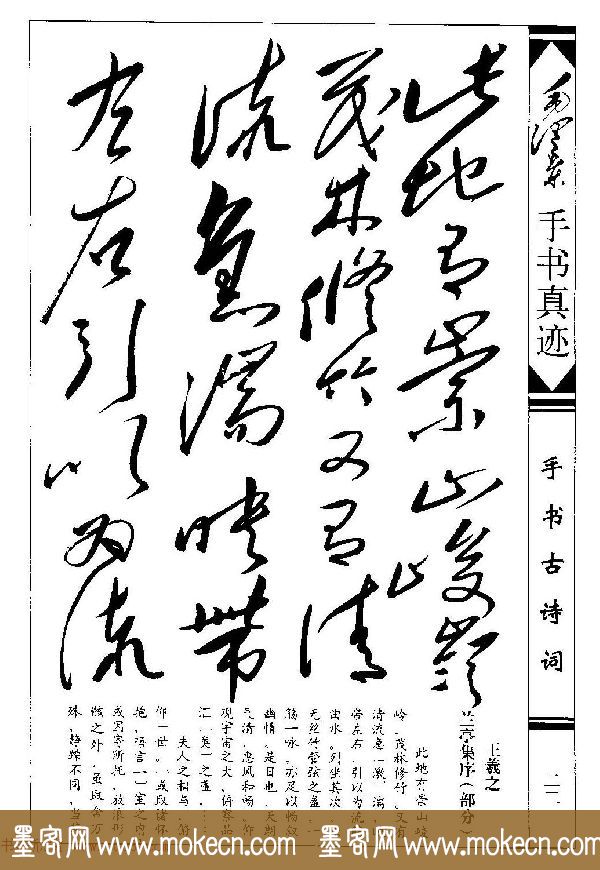 毛泽东
手书真迹
手书古诗词
此地有崇山峻岭
茂林修竹又有清
流急湍映带
左右引以为流
王羲之
兰亭集序(部分)
此地有崇山峻
岭,茂林修竹,又有
清流急湍,
带左右,引以为流
曲水,列坐其次,
无丝竹管弦之盛,一
觞一咏,亦足以畅叙
幽情。是日也,天朗
气清,惠风和畅,仰
观宇宙之大,俯察品
夫人之相与,俯
仰一世,或取诸怀
抱,悟言一室之内
或因寄所托,放浪形
骸之外,虽取舍万
殊,静躁不同,当其
墨客网 www.mokecn.com 墨客网 www.mokecn.com